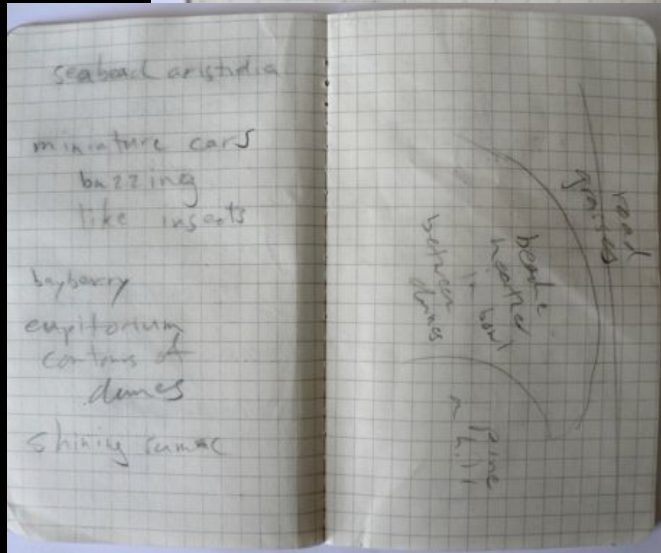 seabeach aristidia
miniature cars
buzzing
like insects
bayberry
eupitorium
contours of
dunes
shining sumac
road
grasses
beach
heather
in bowl
between
dunes
pine
hill